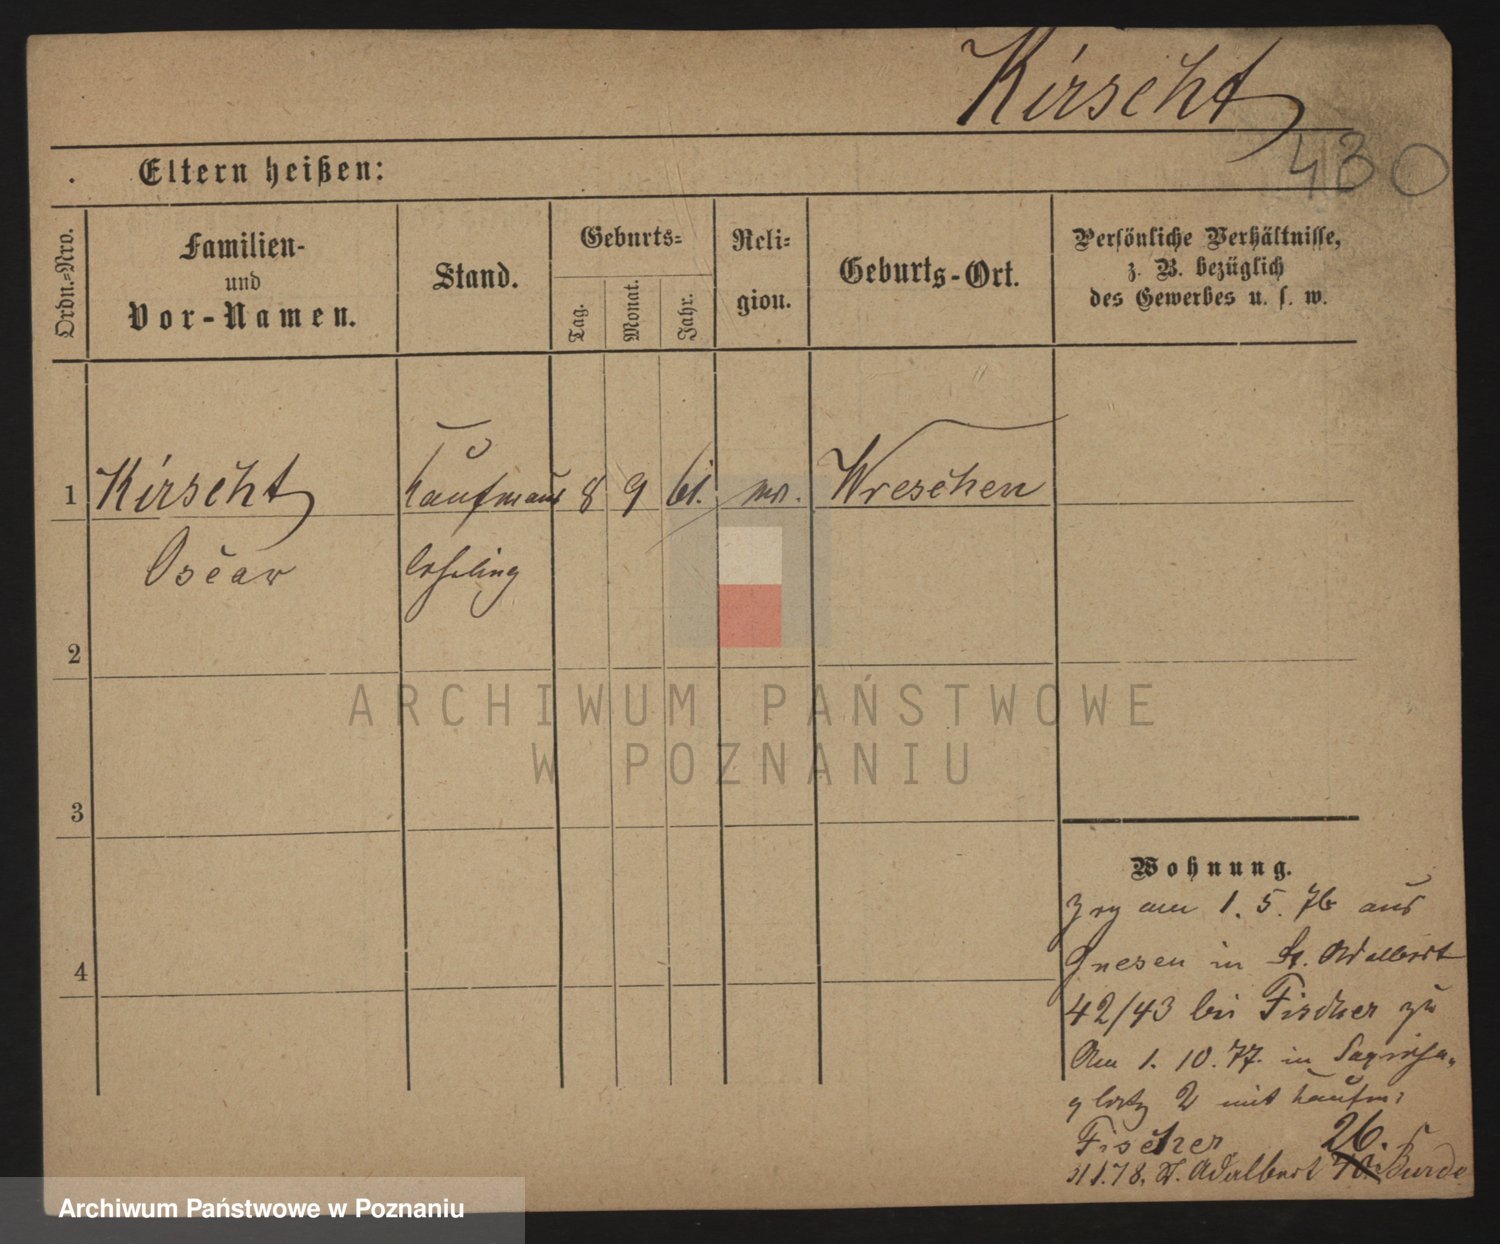 Kirscht
430
Eltern heißen:
Ordn.-Nro.
Familien-
und
Vor-Namen.
Stand.
Geburts-
Tag.
Monat.
Jahr.
Reli-
gion.
Geburts-Ort.
Persönliche Verhältnisse,
z. B. bezüglich
des Gewerbes u. s. w.
1 Kirscht Kaufmans 8 9 61. Wreschen
Oscar
2
3
4
ARCHIWUM PAŃSTWOWE
W POZNANIU
Wohnung.
Zog am 1. 5. 76 aus
Gnesen in St. Adalbert
42/43 bei Fischer zu
Am 1. 10. 77. in Sapieha-
platz 2 mit Kaufm:
Fischer 26.
1.78. St. Adalbert
Archiwum Państwowe w Poznaniu